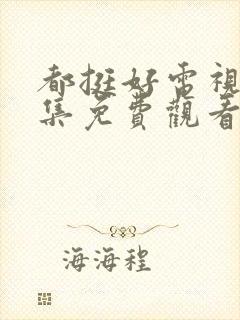 都挺好電視
集免費觀看
海海程